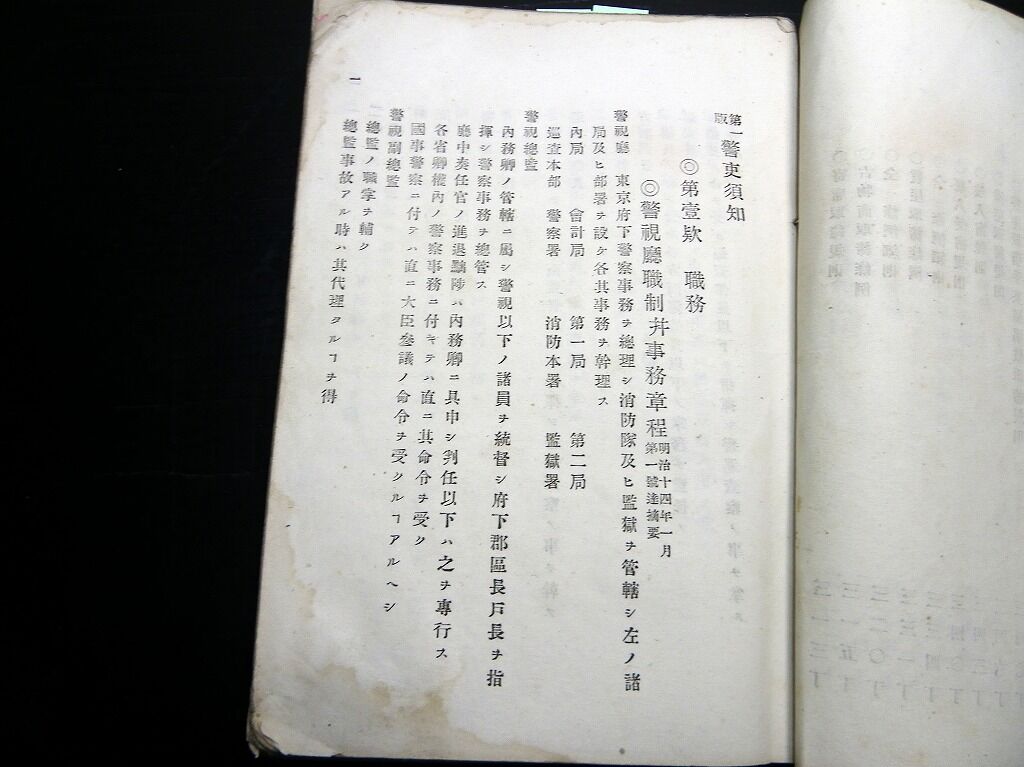 第一版 警吏須知
◎第壹欵 職務
◎警視廳職制幷事務章程 明治十四年一月第一號達摘要
警視廳ハ東京府下警察事務ヲ總理シ消防隊及ヒ監獄ヲ管轄シ左ノ諸
局及ヒ部署ヲ設ケ各其事務ヲ幹理ス
內局 會計局 第一局 第二局
巡査本部 警察署 消防本署 監獄署
警視總監
內務卿ノ管轄ニ屬シ警視以下ノ諸員ヲ統督シ府下郡區長戶長ヲ指
揮シ警察事務ヲ總管ス
廳中奏任官ノ進退黜陟ハ內務卿ニ具申シ判任以下ハ之ヲ專行ス
各省卿權內ノ警察事務ニ付キテハ直ニ其命令ヲ受ク
國事警察ニ付テハ直ニ大臣參議ノ命令ヲ受クルヿアルヘシ
警視副總監
總監ノ職掌ヲ輔ク
總監事故アル時ハ其代理タルヿヲ得
一